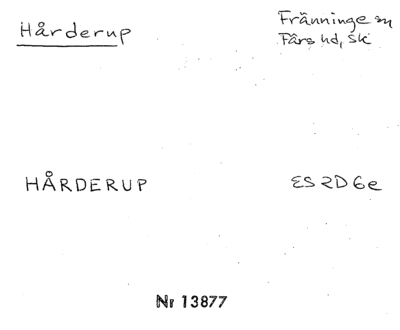 Hårderup
Fränninge sn
Färs hd, Sk
HÅRDERUP
ES 2D 6e
Nr 13877